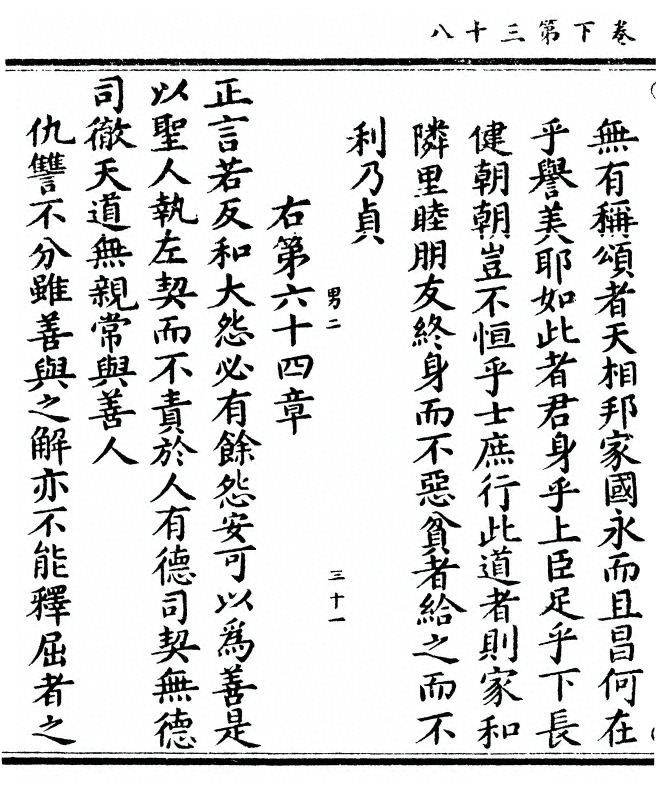 卷下第三十八
無有稱頌者天相邦家國永而且昌何在
乎譽美耶如此者君身乎上臣足乎下長
健朝朝豈不恒乎士庶行此道者則家和
隣里睦朋友終身而不惡貧者給之而不
利乃貞
男二
三十一
右第六十四章
正言若反和大怨必有餘怨安可以爲善是
以聖人執左契而不責於人有德司契無德
司徹天道無親常與善人
仇讐不分雖善與之解亦不能釋屈者之